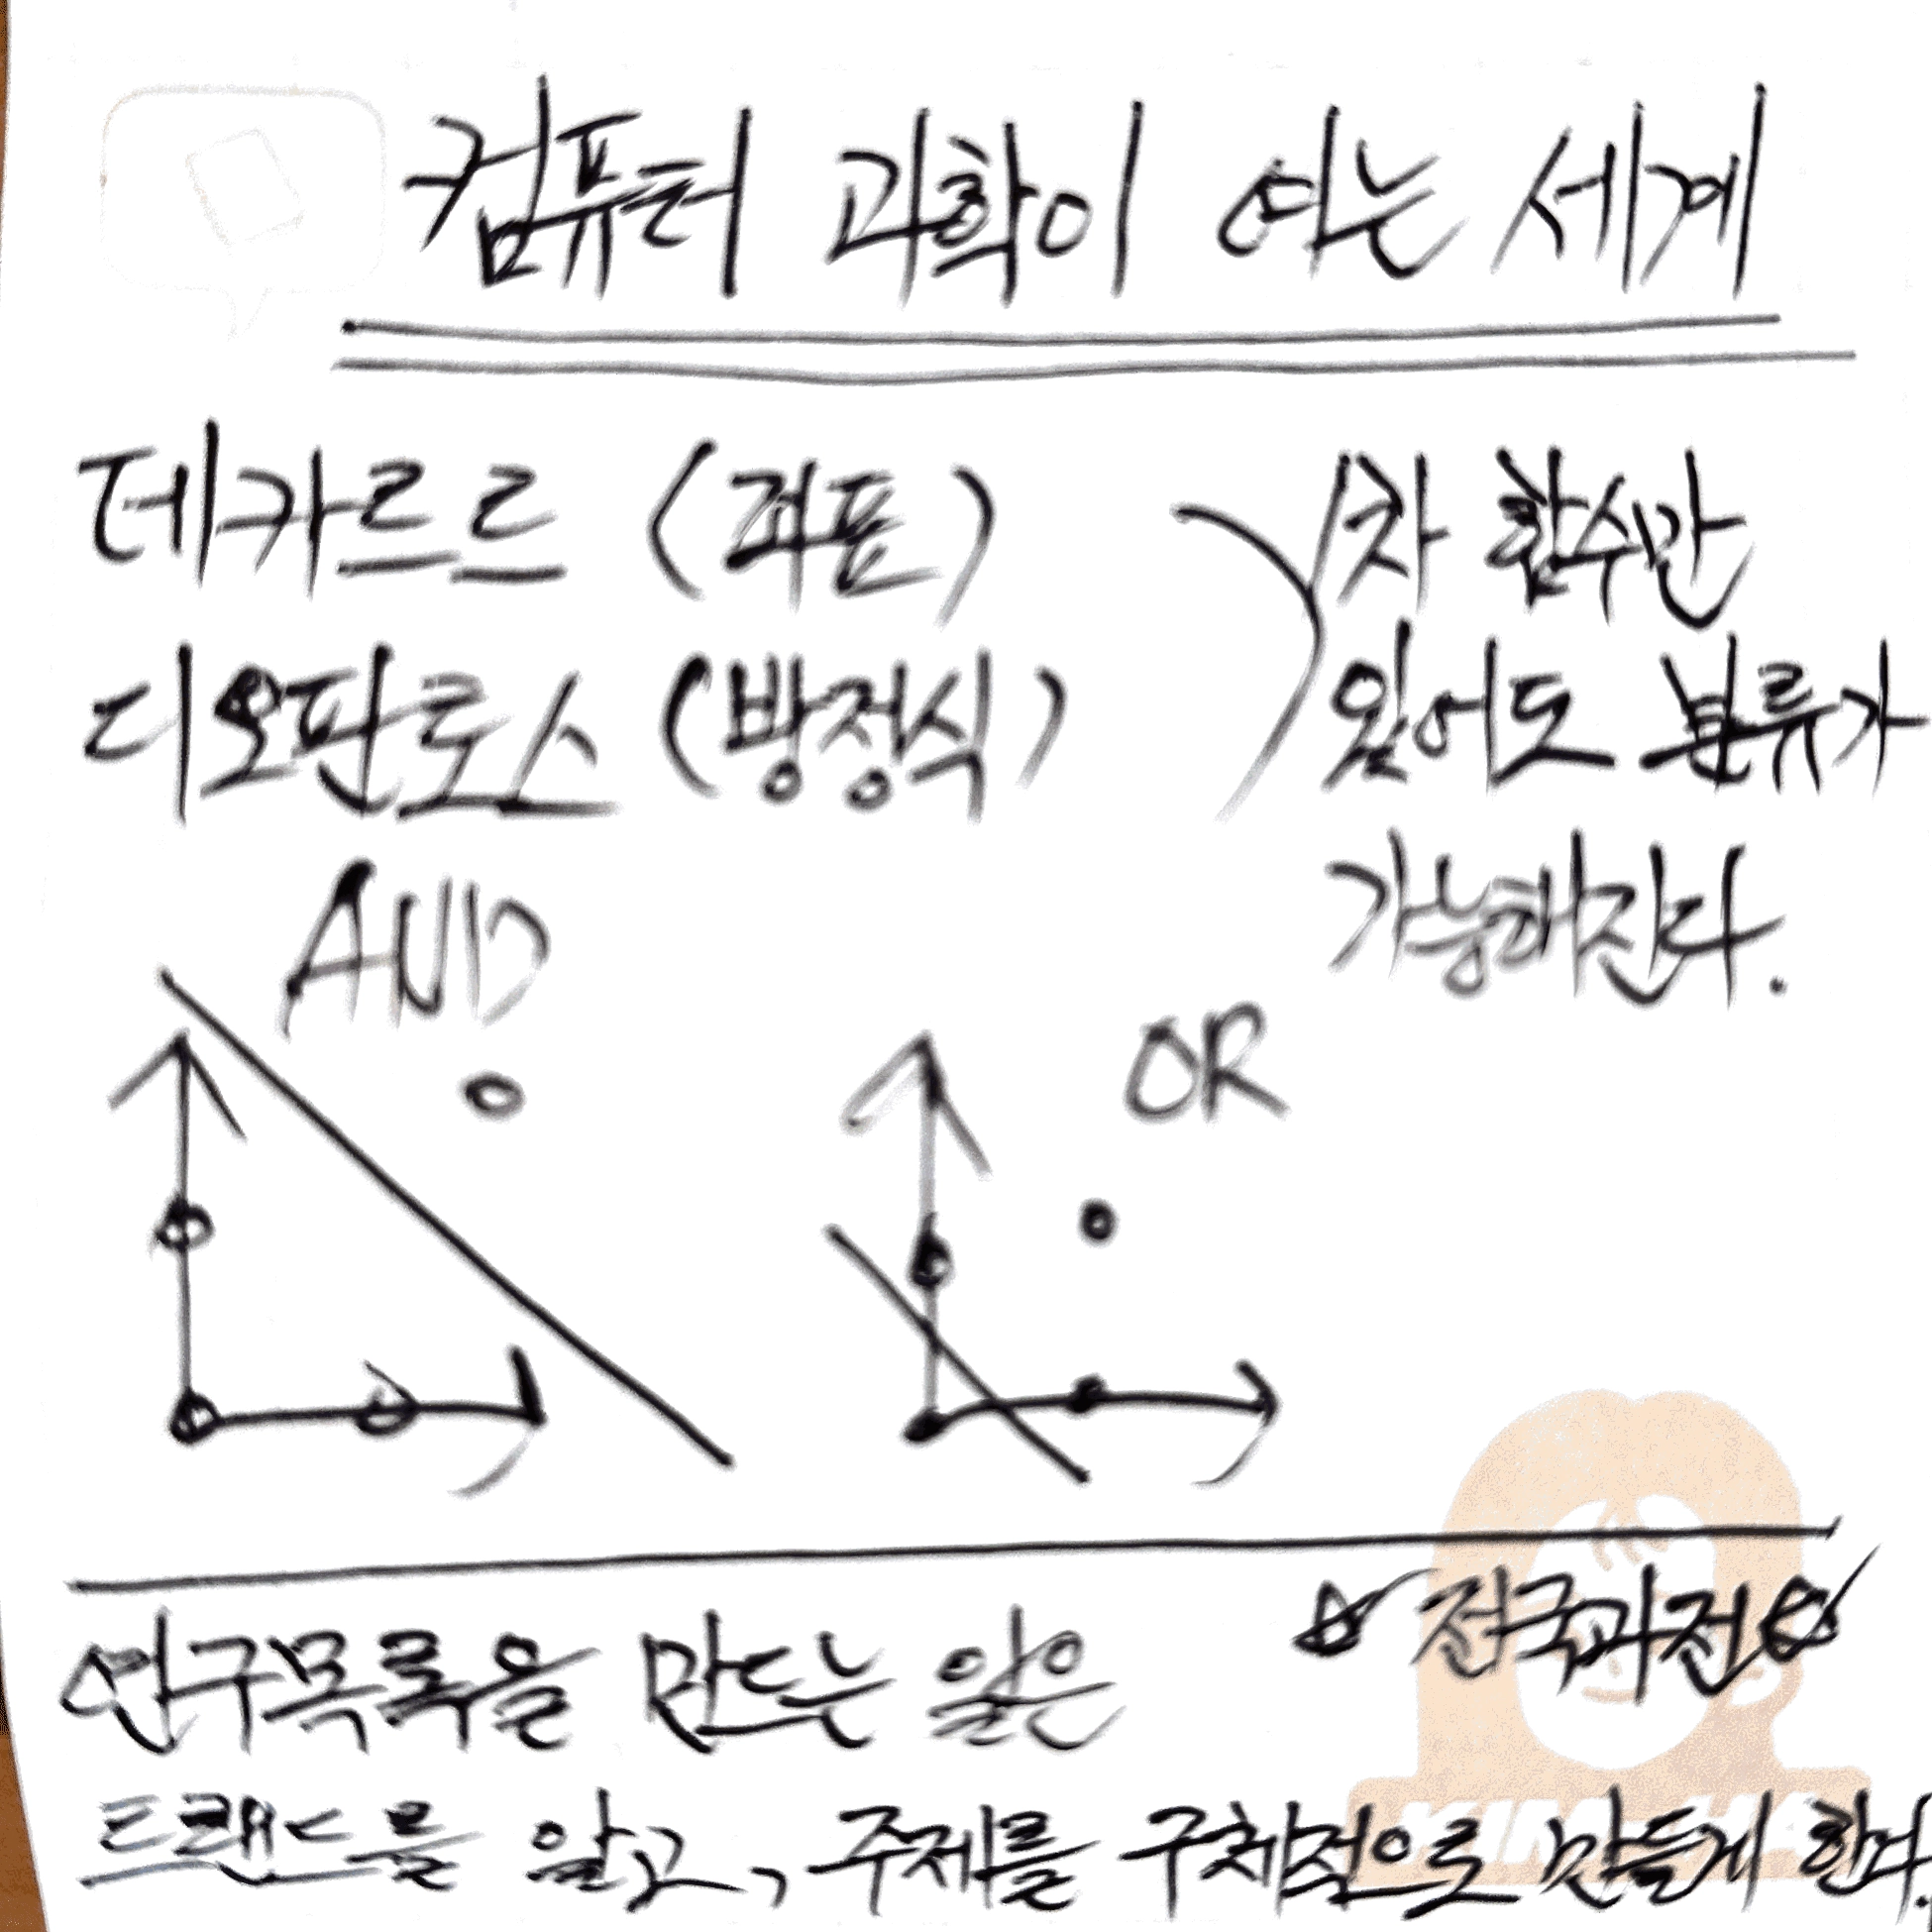 컴퓨터 과학이 여는 세계
데카르르 (좌표)
디오판토스 (방정식)
1차 함수만
있어도 분류가
가능해진다.
AND
OR
전국과전
연구목록을 만드는 일은
트랜드를 알고, 주제를 구체적으로 만들게 한다.